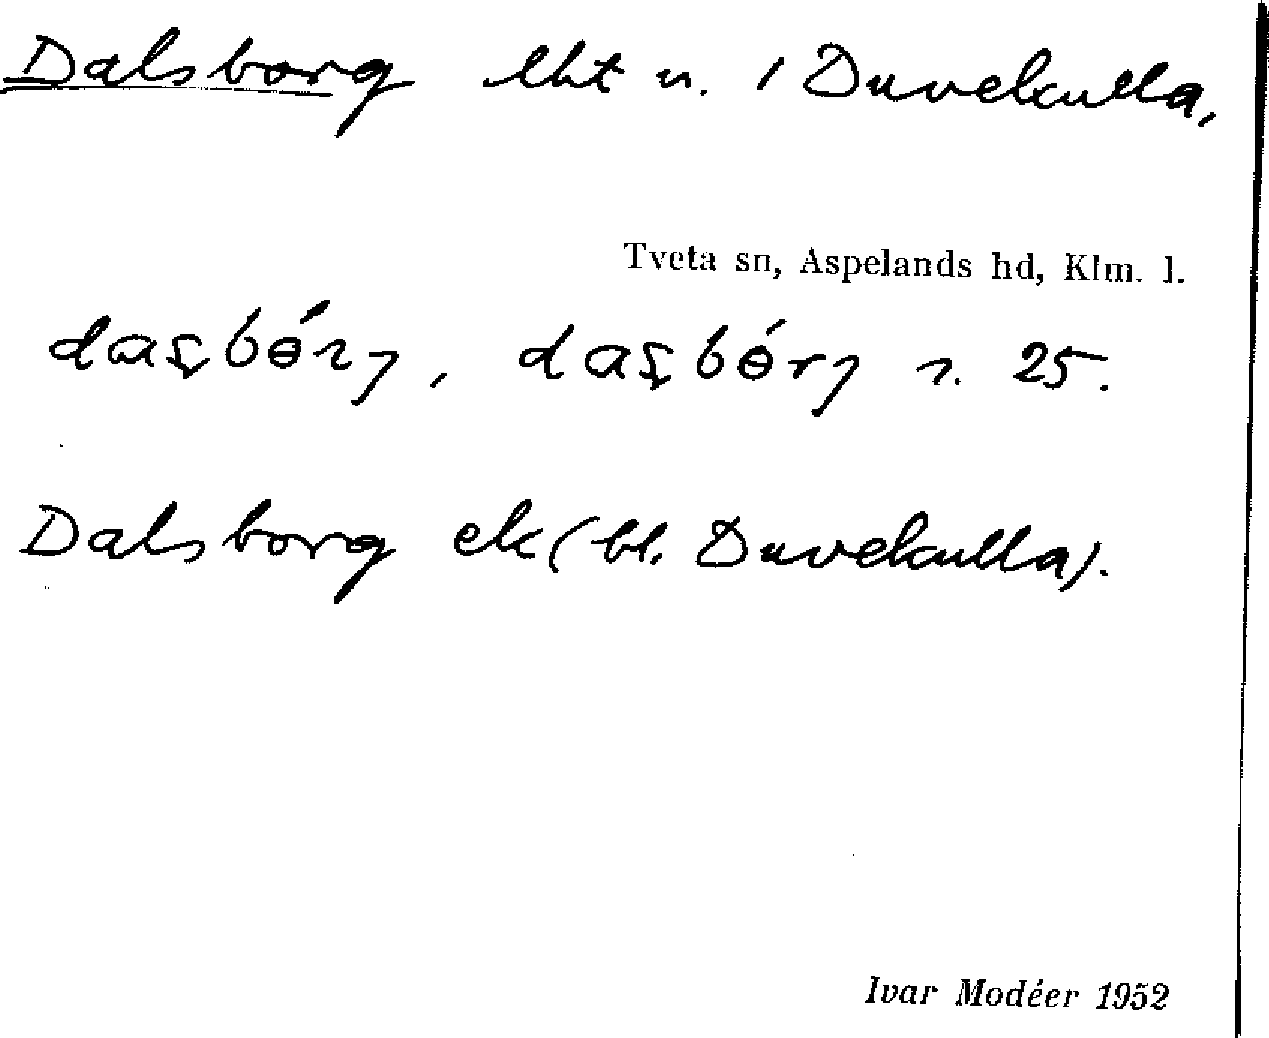 Dalsborg lht n. / Duvekulla,
Tveta sn, Aspelands hd, Klm. l.
dasbórj, dasbórj n. 25.
Dalsborg ek (bl. Duvekulla).
Ivar Modéer 1952